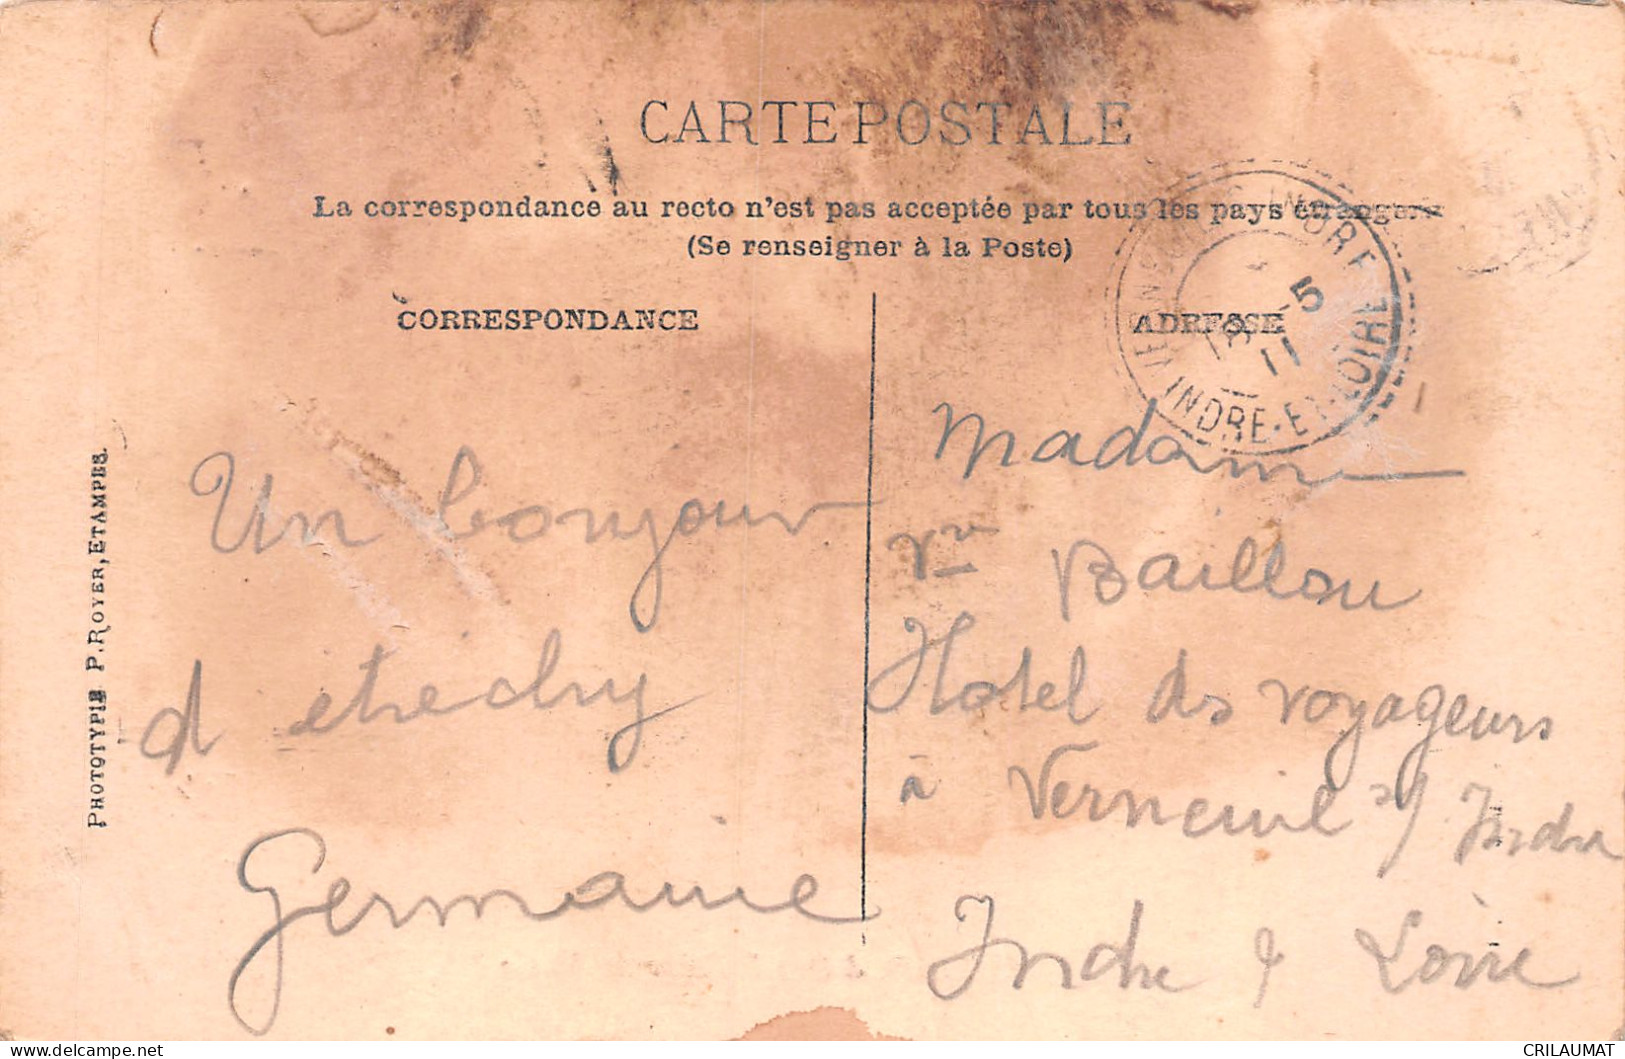 CARTE POSTALE
La correspondance au recto n'est pas acceptée par tous les pays étrangers
(Se renseigner à la Poste)
CORRESPONDANCE
ADRESSE
5
11
INDRE-ET-LOIRE
PHOTOTYPIE P. ROYER, ETAMPES.
Un bonjour
d etrechy
Germaine
Madame
Vve Baillou
Hotel des voyageurs
à Verneuil s/ Indre
Indre & Loire
CRILAUMAT